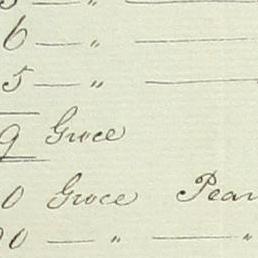 6 — " —
5 — " —
9 Groce
0 Groce Pear
90 — " — "